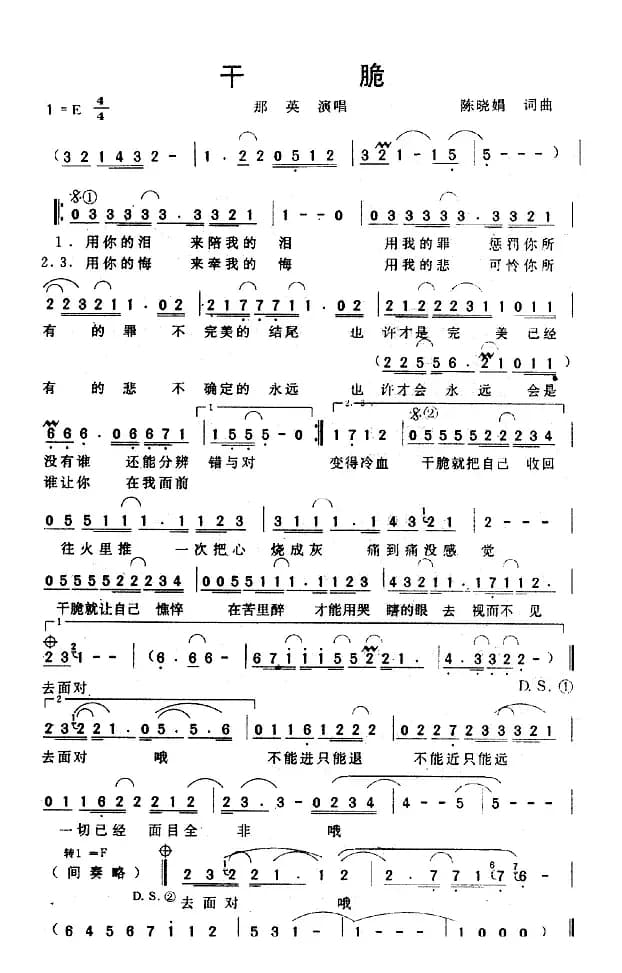 干 脆
1=E 4/4 那 英 演唱 陈晓娟 词曲
(321432- | 1.220512 | 321-15 | 55--- )
𝄋① 033333.3321 | 1--0 | 033333.3321
1.用你的泪 来陪我的 泪 用我的罪 惩罚你所
2.3.用你的悔 来牵我的 悔 用我的悲 可怜你所
223211.02 | 2177711.02 | 2122223111011
有 的 罪 不 完美的 结尾 也 许才是 完 美 已经
(22556.211011)
有 的 悲 不 确定的 永远 也 许才会 永 远 会是
1. 2.3. 𝄋②
666.06671 | 1555-0 | 1712 | 0555522234
没有谁 还能分辨 错与对 变得冷血 干脆就把自己 收回
谁让你 在我而前
055111.1123 | 3111.1.43121 | 2---
往火里推 一次把心 烧成灰 痛到痛没感 觉
05555522234 | 0055111.1123 | 43211.17112.
干脆就让自己 憔悴 在苦里醉 才能用哭 瞎的眼 去 视而不 见
1
23-- | (6.66- | 67111155221. | 4.3322-)
去面对 D.S.①
2
23221.05.5.6 | 01161222 | 022723332 1
去面对 哦 不能进只能退 不能近只能远
01162 2212 | 23.3-0234 | 4-5 5 | 5---
一切已经 面目全 非 哦
转1=F
(间奏略) 23221.12 | 2.7771767 6-
D.S.② 去 面 对 哦
(64567112 | 531- | 1--- | 1000)